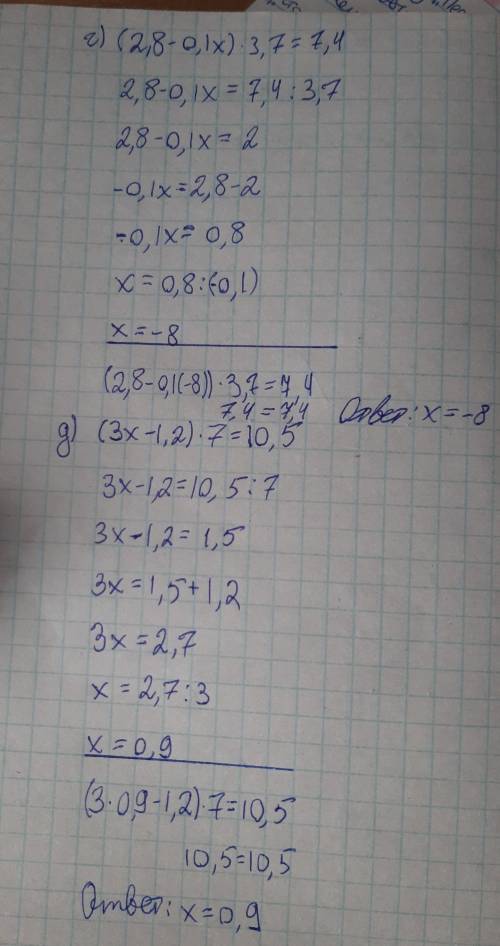 г) (2,8-0,1x)·3,7=7,4
2,8-0,1x=7,4:3,7
2,8-0,1x=2
-0,1x=2,8-2
-0,1x=0,8
x=0,8:(-0,1)
x=-8
(2,8-0,1(-8))·3,7=7,4
7,4=7,4 Ответ: x=-8
д) (3x-1,2)·7=10,5
3x-1,2=10,5:7
3x-1,2=1,5
3x=1,5+1,2
3x=2,7
x=2,7:3
x=0,9
(3·0,9-1,2)·7=10,5
10,5=10,5
Ответ: x=0,9